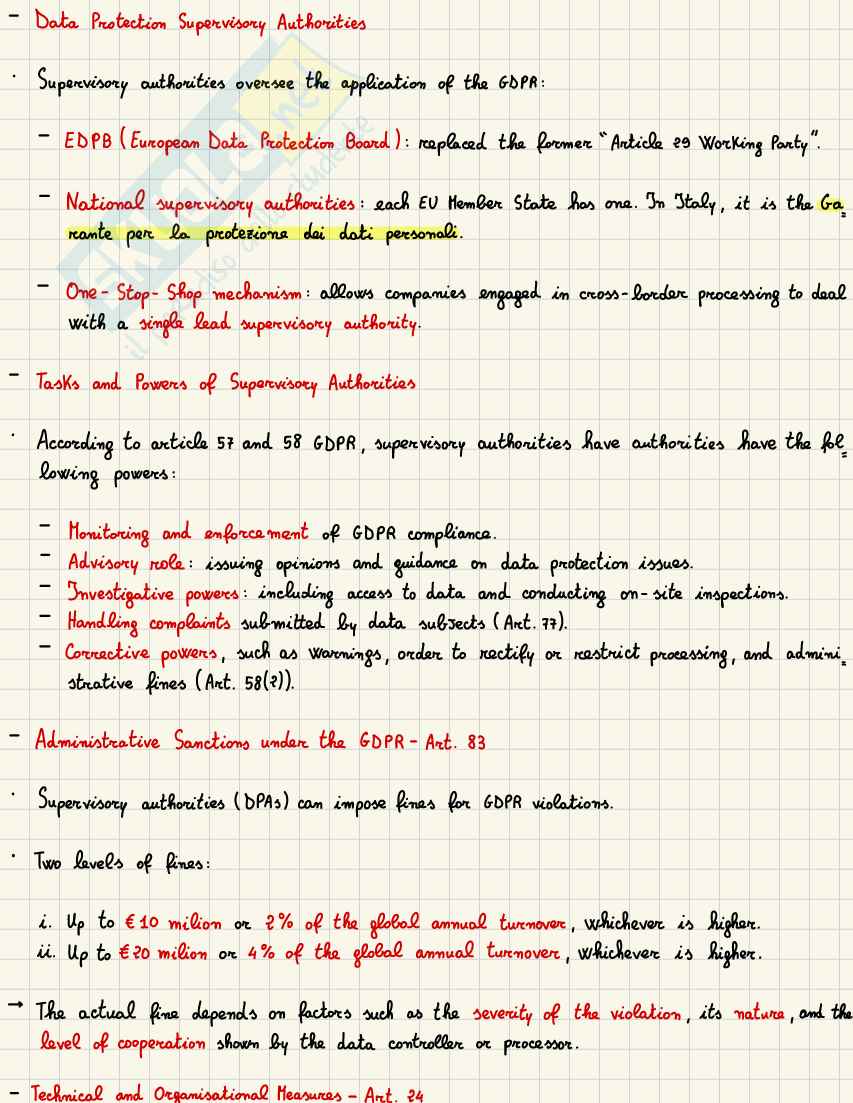 - Data Protection Supervisory Authorities
· Supervisory authorities oversee the application of the GDPR:
- EDPB (European Data Protection Board): replaced the former "Article 29 Working Party".
- National supervisory authorities: each EU Member State has one. In Italy, it is the Ga=
rante per la protezione dei dati personali.
- One-Stop-Shop mechanism: allows companies engaged in cross-border processing to deal
with a single lead supervisory authority.
- Tasks and Powers of Supervisory Authorities
· According to article 57 and 58 GDPR, supervisory authorities have authorities have the fol=
lowing powers:
- Monitoring and enforcement of GDPR compliance.
- Advisory role: issuing opinions and guidance on data protection issues.
- Investigative powers: including access to data and conducting on-site inspections.
- Handling complaints submitted by data subjects (Art. 77).
- Corrective powers, such as warnings, order to rectify or restrict processing, and admini=
strative fines (Art. 58(2)).
- Administrative Sanctions under the GDPR - Art. 83
· Supervisory authorities (DPAs) can impose fines for GDPR violations.
· Two levels of fines:
i. Up to €10 milion or 2% of the global annual turnover, whichever is higher.
ii. Up to €20 milion or 4% of the global annual turnover, whichever is higher.
→ The actual fine depends on factors such as the severity of the violation, its nature, and the
level of cooperation shown by the data controller or processor.
- Technical and Organisational Measures - Art. 24